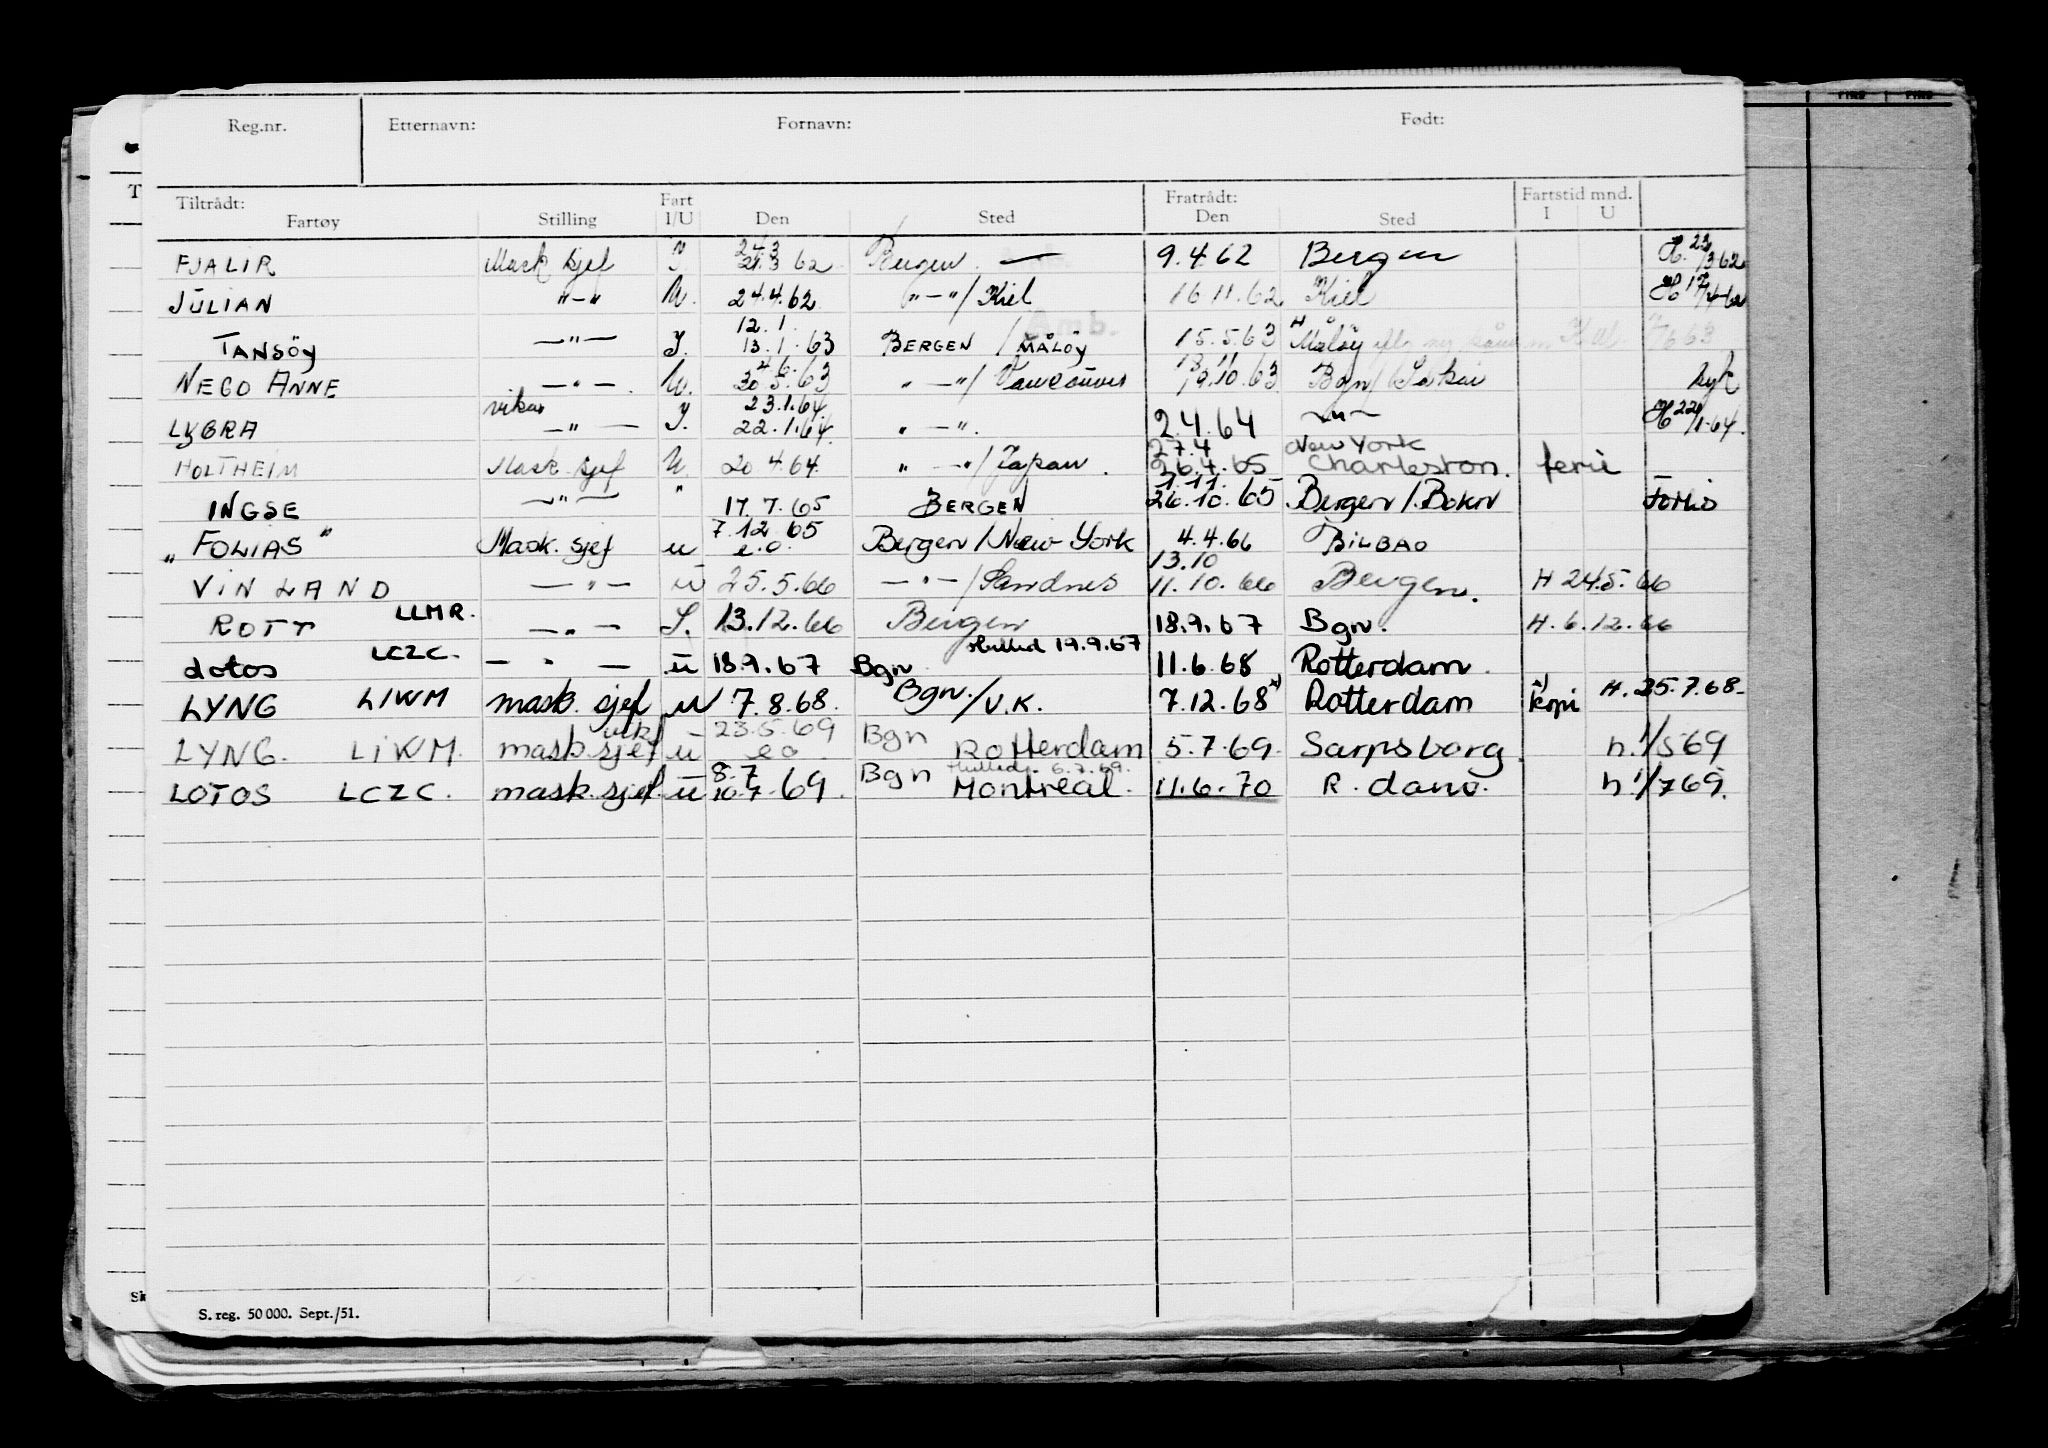 Reg.nr. Etternavn: Fornavn: Født:
Tiltrådt: Fartøy Stilling Fart I/U Den Sted Fratrådt: Den Sted Fartstid mnd. I U
FJALIR Mask sjef 24.3 21.3 62 Bergen — 9.4.62 Bergen H. 23/3 62
JULIAN "–" U. 24.4.62 "–"/ Kiel 16.11.62 Kiel H 17/4-62
TANSÖY —"— J. 12.1. 13.1.63 BERGEN / MÅLÖY 15.5.63 Måløy
NEGO ANNE —"— U. 4.6. 30.5.63 "—"/ Vancouver 19.10.63 Bgn/
LYGRA vikar —"— J. 23.1.64 22.1.64. "—". 2.4.64 —"— H 22/1.64.
HOLTHEIM Mask. sjef U. 20.4.64. "—"/ Japan. 27.4 26.4.65 New York Charleston. ferie
INGSE —"— " 17.7.65 BERGEN 1.11. 26.10.65 Bergen/.Bokn
" FOLIAS " Mask. sjef u 7.12 65 e.o. Bergen / New York 4.4.66 BILBAO
VINLAND —"— u 25.5.66 —"—/ Sandnes 13.10 11.10.66 Bergen. H 24.5.66
ROTT LLMR. —"— 13.12.66 Bergen 18.9.67 Bgn. H. 6.12.66
Lotos LCZC. —"— u 18.9.67 Bgn 19.9.67 11.6.68 Rotterdam.
LYNG LIWM mask. sjef u 7.8.68. Bgn./U.K. 7.12.68 x) Rotterdam x) kopi H. 25.7.68-
LYNG. LIWM. mask.sjef vik. u 23.5.69 eo Bgn Rotterdam 5.7.69. Sarpsborg. h. 1/5 69
LOTOS LCZC. mask.sjef. u 8.7 10.7.69. Bgn 6.7.69. Montreal. 11.6.70 R.dam. h. 1/7 69.
S. reg. 50 000. Sept./51.